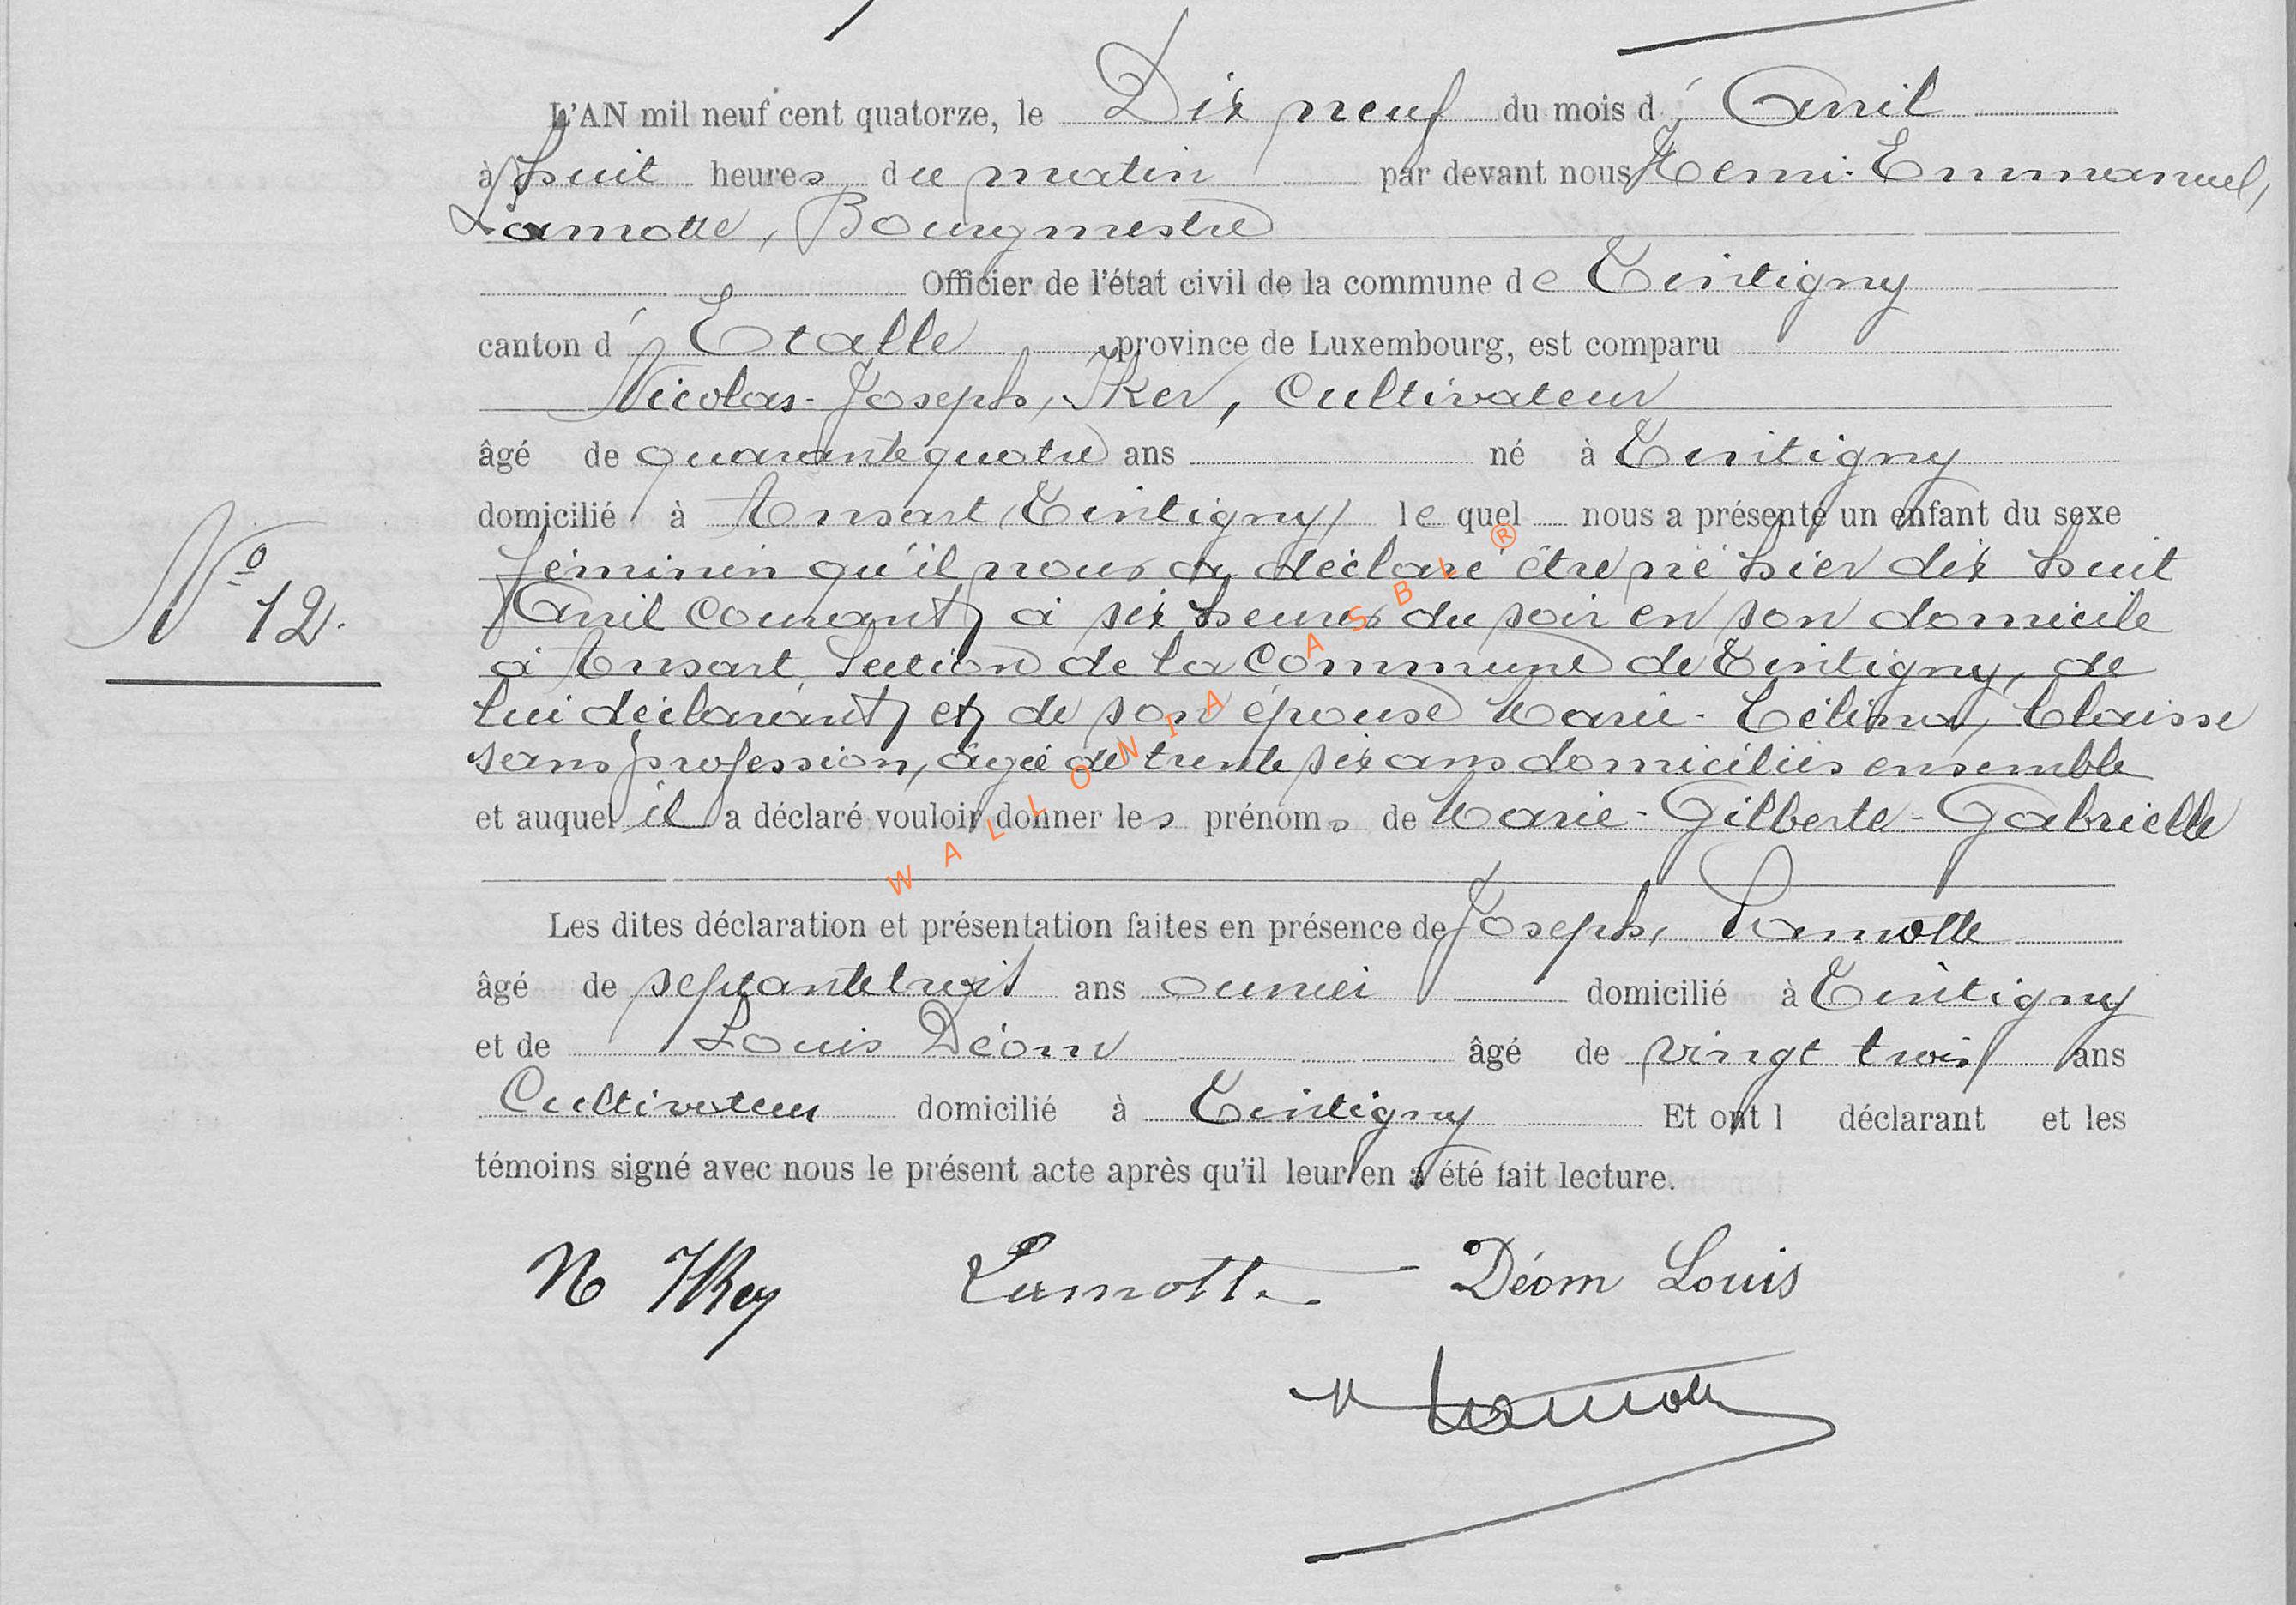 L'AN mil neuf cent quatorze, le Dix neuf du mois d' Avril
à huit heures du matin par devant nous Henri-Emmanuel,
Lamotte, Bourgmestre
Officier de l'état civil de la commune de Tintigny
canton d' Etalle province de Luxembourg, est comparu
Nicolas-Joseph, Iker, Cultivateur
âgé de quarante quatre ans né à Tintigny
domicilié à Ansart (Tintigny) le quel nous a présenté un enfant du sexe
féminin qu'il nous a déclaré être né hier dix huit
Avril courant, à six heures du soir en son domicile
N° 12.
à Ansart, Section de la Commune de Tintigny, de
lui déclarant, et de son épouse Marie-Célina, Claisse
sans profession, âgée de trente six ans domiciliés ensemble
et auquel il a déclaré vouloir donner les prénoms de Marie-Gilberte-Gabrielle
Les dites déclaration et présentation faites en présence de Joseph, Lamotte
âgé de ans domicilié à Tintigny
et de Louis Déom âgé de vingt trois ans
Cultivateur domicilié à Tintigny Et ont l déclarant et les
témoins signé avec nous le présent acte après qu'il leur en a été fait lecture.
N Lamotte Déom Louis
Lamotte
WALLONIA ASBL ®